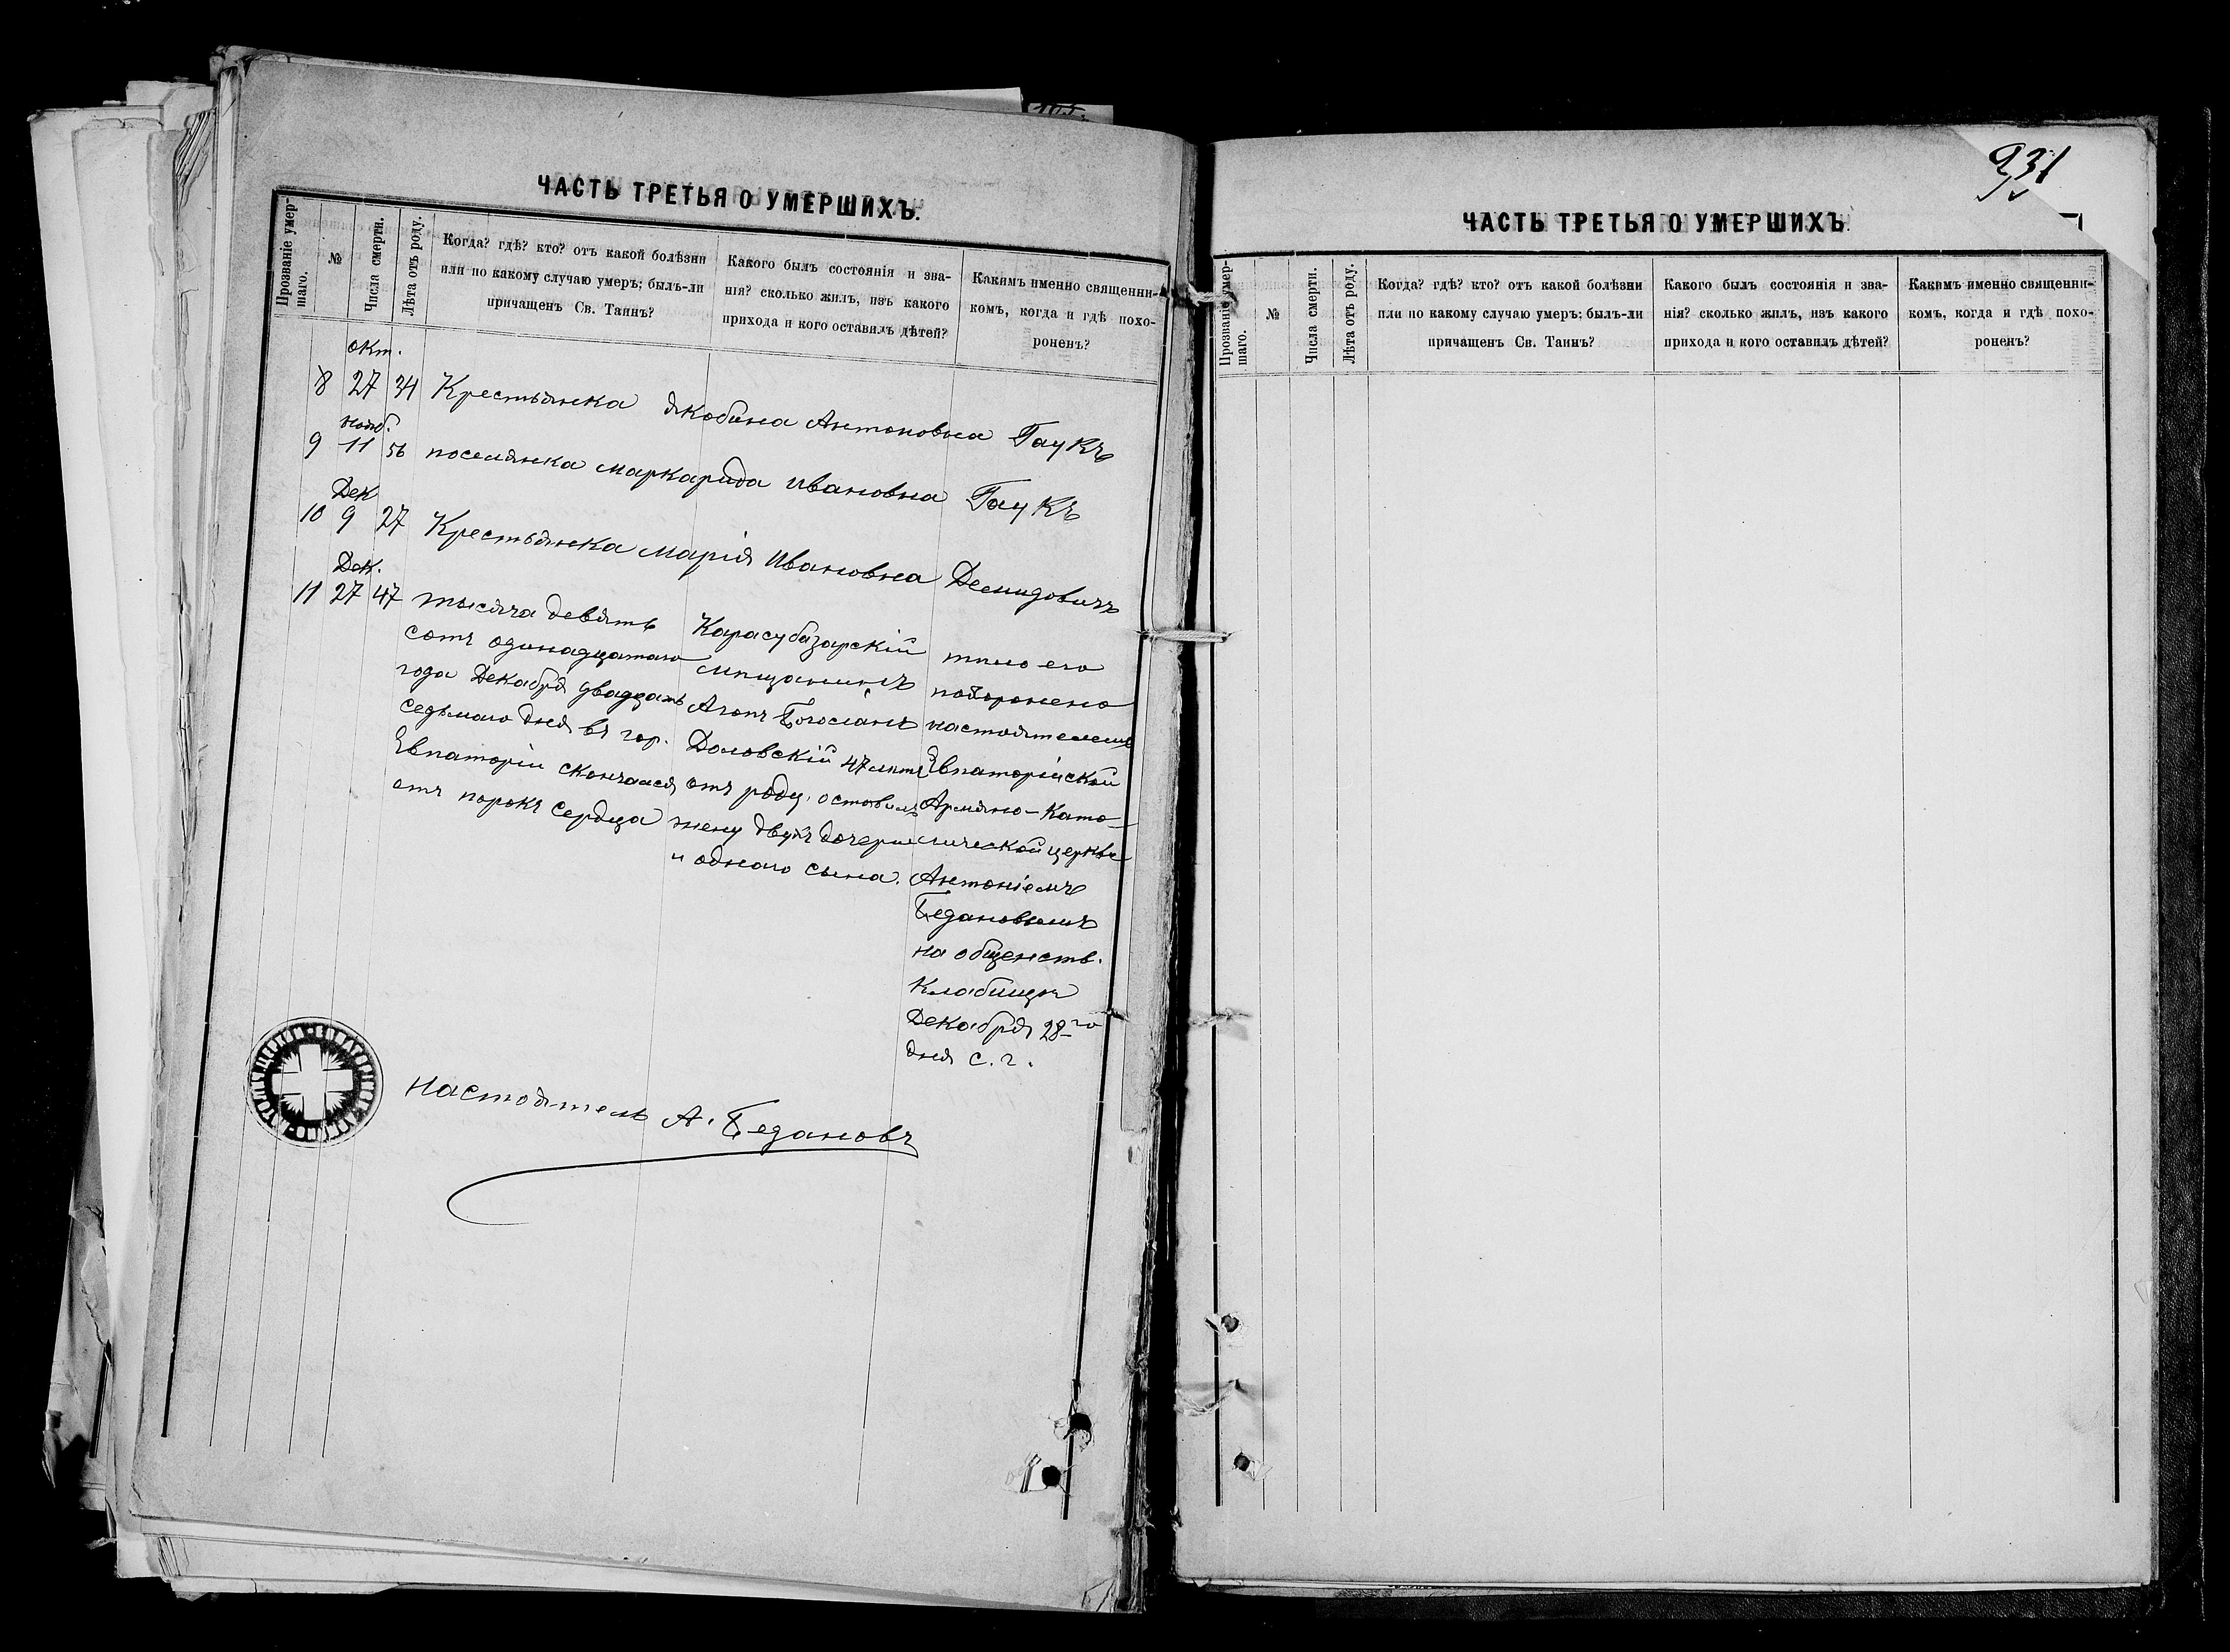 ЧАСТЬ ТРЕТЬЯ О УМЕРШИХЪ.
Прозваніе умер-
шаго.
№
Числа смерти.
Лѣта отъ роду.
Когда? гдѣ? кто? отъ какой болѣзни
или по какому случаю умеръ; былъ-ли
причащенъ Св. Таинъ?
Какого былъ состоянія и зва-
нія? сколько жилъ, изъ какого
прихода и кого оставилъ дѣтей?
Какимъ именно священни-
комъ, когда и гдѣ похо-
роненъ?
окт.
8 27 34 Крестьянка Якобина Антоновна Гаукъ
нояб.
9 11 56 поселянка Маркарида Ивановна Гаукъ
Дек
10 9 27 Крестьянка Марія Ивановна Демидовичъ
Дек.
11 27 47
тысяча девять
сотъ одинадцатаго
года Декабря двадцать
седьмого дня въ гор.
Евпаторіи скончался
отъ порокъ сердца
Карасубазарскій
мѣщанинъ
Агопъ Богосіанъ
Доловскій 47 лѣтъ
отъ роду, оставилъ
жену двухъ дочери
и одного сына.
тѣло его
похоронено
настоятелемъ
Евпаторійской
Армяно-Като-
лической церкви
Антоніемъ
Бедановымъ
на общенств.
кладбищѣ
Декабря 28-го
дня с. г.
Настоятель А. Бедановъ
931
ЧАСТЬ ТРЕТЬЯ О УМЕРШИХЪ.
Прозваніе умер-
шаго.
№
Числа смерти.
Лѣта отъ роду.
Когда? гдѣ? кто? отъ какой болѣзни
или по какому случаю умеръ; былъ-ли
причащенъ Св. Таинъ?
Какого былъ состоянія и зва-
нія? сколько жилъ, изъ какого
прихода и кого оставилъ дѣтей?
Какимъ именно священни-
комъ, когда и гдѣ похо-
роненъ?